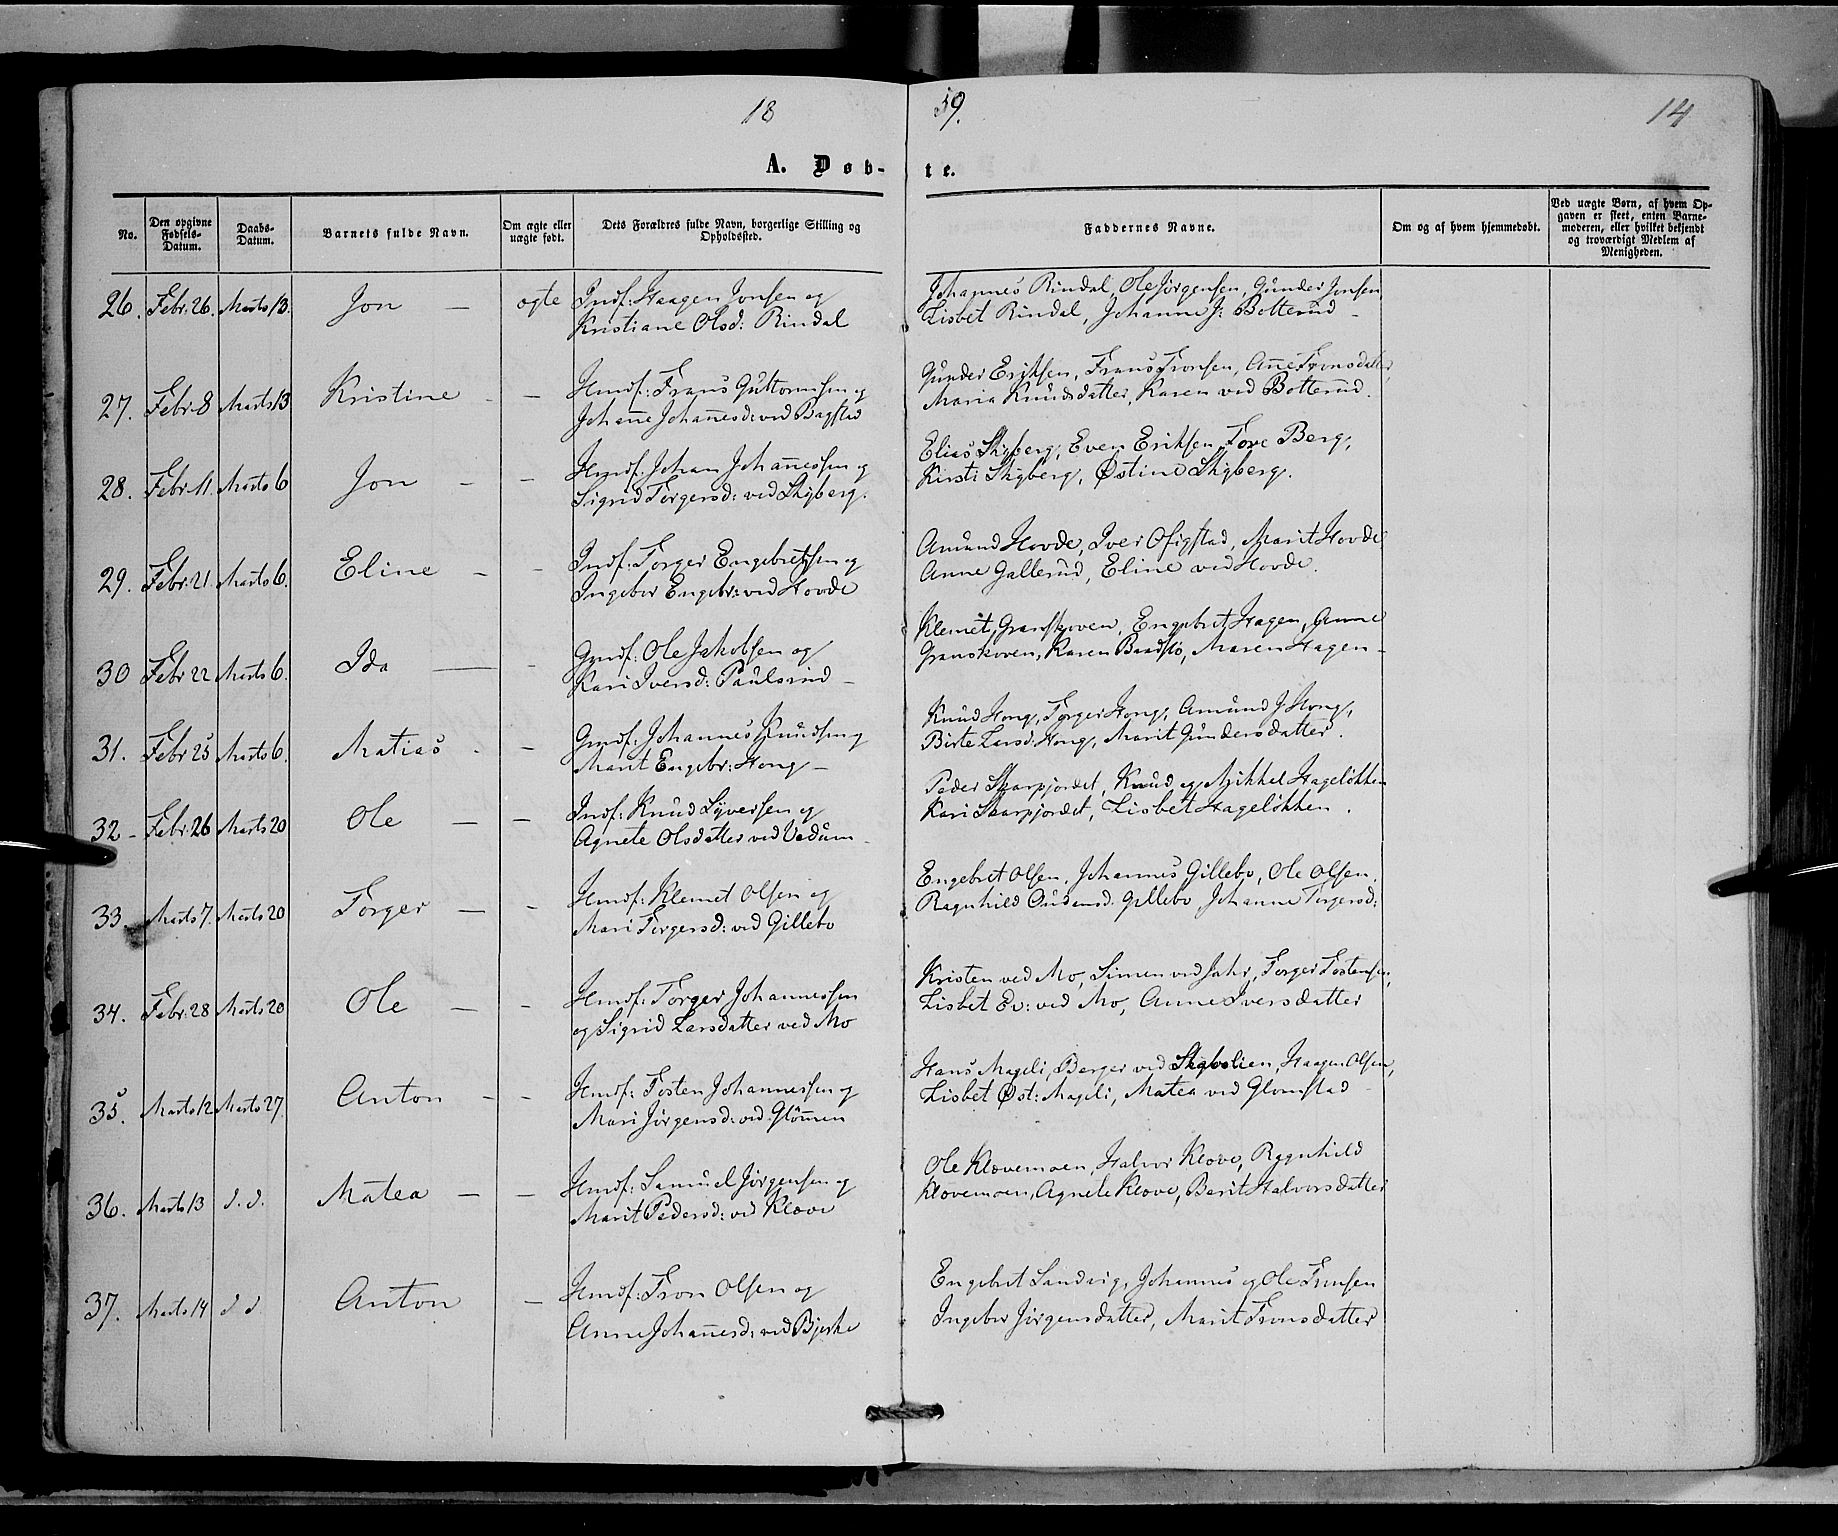 18 59. 14
A. Døb- te.
No. | Den opgivne Fødsels-Datum. | Daabs-Datum. | Barnets fulde Navn. | Om ægte eller uægte født. | Dets Forældres fulde Navn, borgerlige Stilling og Opholdssted. | Faddernes Navne. | Om og af hvem hjemmedøbt. | Ved uægte Børn, af hvem Opgaven er skeet, enten Barnemoderen, eller hvilket bekjendt og troværdigt Medlem af Menigheden.
26. Febr: 26. Marts 13. Jon — ægte Indf: Haagen Jonsen og Johannes Rindal, Ole Jørgensen, Gunder Jonsen,
Kristiane Olsd: Rindal Lisbet Rindal, Johanne J: Botterud –
27. Febr 8 Marts 13 Kristine - – Hmdf: Frans Guttormsen og Gunder Eriksen, Frans Tronsen, Anne Tronsdatter,
Johanne Johannesd: ved Bagstad Maria Knudsdatter, Karen ved Botterud.
28. Febr 11. Marts 6 Jon – – Hmdf: Johan Johannessen og Elias Skyberg, Even Eriksen, Tore Berg,
Sigrid Torgersd: ved Skyberg. Kirsti Skyberg, Østine Skyberg.
29. Febr: 21. Marts 6. Eline – – Indf: Torger Engebretsen og Amund Hovde, Iver Ofigstad, Marit Hovde
Ingebor Engebr: ved Hovde Anne Gallerud, Eline ved Hovde.
30 Febr 22 Marts 6. Ida — – Gmdf: Ole Jakobsen og Klemet Granskoven, Engebret Hagen, Anne
Kari Iversd: Paulsrud – Granskoven, Karen Baadstø, Maren Hagen –
31. Febr 25 Marts 6. Matias - – Gmdf: Johannes Knudsen og Knud Hong, Torger Hong, Amund J. Hong,
Marit Engebr: Hong – Birte Larsd: Hong, Marit Gundersdatter.
32 – Febr: 26 Marts 20 Ole – – Indf: Knud Syversen og Peder Skarpjordet, Knud og Mikkel Hageløkken
Agnete Olsdatter ved Vedum – Kari Skarpjordet, Lisbet Hageløkken.
33. Marts 7. Marts 20 Torger – – Hmdf: Klemet Olsen og Engebret Olsen, Johannes Gillebo, Ole Olsen,
Mari Torgersd: ved Gillebo Ragnhild Audensd: Gillebo Johanne Torgersd:
34. Febr: 28 Marts 20 Ole – – Hmdf: Torger Johannessen Kristen ved Mo, Simen ved Jahr, Torger Tostensen,
og Sigrid Larsdatter ved Mo Lisbet Ev: ved Mo, Anne Iversdatter
35. Marts 12 Marts 27. Anton – – Hmdf: Tosten Johannessen og Hans Mageli, Berger ved Skabolien, Haagen Olsen,
Mari Jørgensd: ved Glømmen Lisbet Øst: Mageli, Matea ved Glomstad
36. Marts 13 d. d. Matea – – Hmdf: Samuel Jørgensen og Ole Klovemoen, Halvor Klove, Ragnhild
Marit Pedersd: ved Klove Klovemoen, Agnete Klove, Berit Halvorsdatter
37. Marts 14 d d Anton – Hmdf: Tron Olsen og Engebret Sandvig, Johannes og Ole Tronsen
Anne Johannesd: ved Bjerke Ingebor Jørgensdatter, Marit Tronsdatter